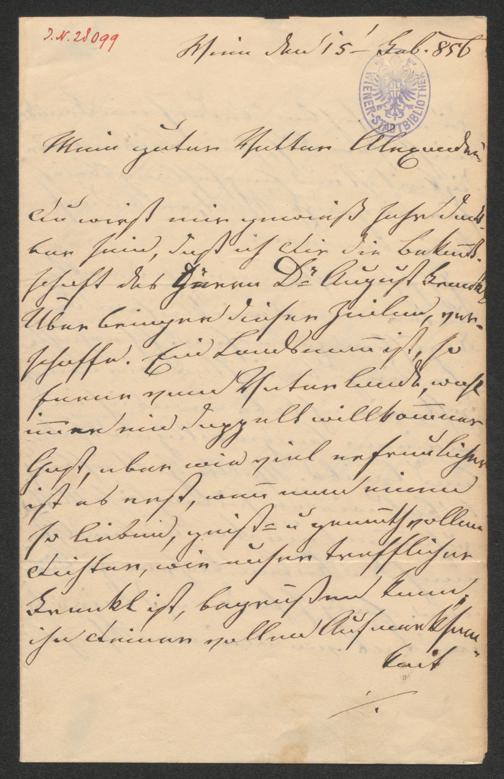 J.N. 28099
Wien den 15t Feb. 856
WIENER-STADTBIBLIOTHEK
Mein guter Vetter Alexander
Du wirst mir gewiß sehr dank-
bar sein, daß ich Dir die Bekannt-
schaft des Herrn Dr August Franckl
Überbringer dieser Zeilen, ver-
schaffe. Ein Landsmann ist, so
ferne vom Vaterlande, wohl
immer ein doppelt willkommner
Gast, aber wie viel erfreulicher
ist es erst, wenn man einen
so lieben, geist- u gemüthvollen
Dichter, wie unser trefflicher
Franckl ist, begrüßen kann;
ihn Deiner vollen Aufmerksam-
keit